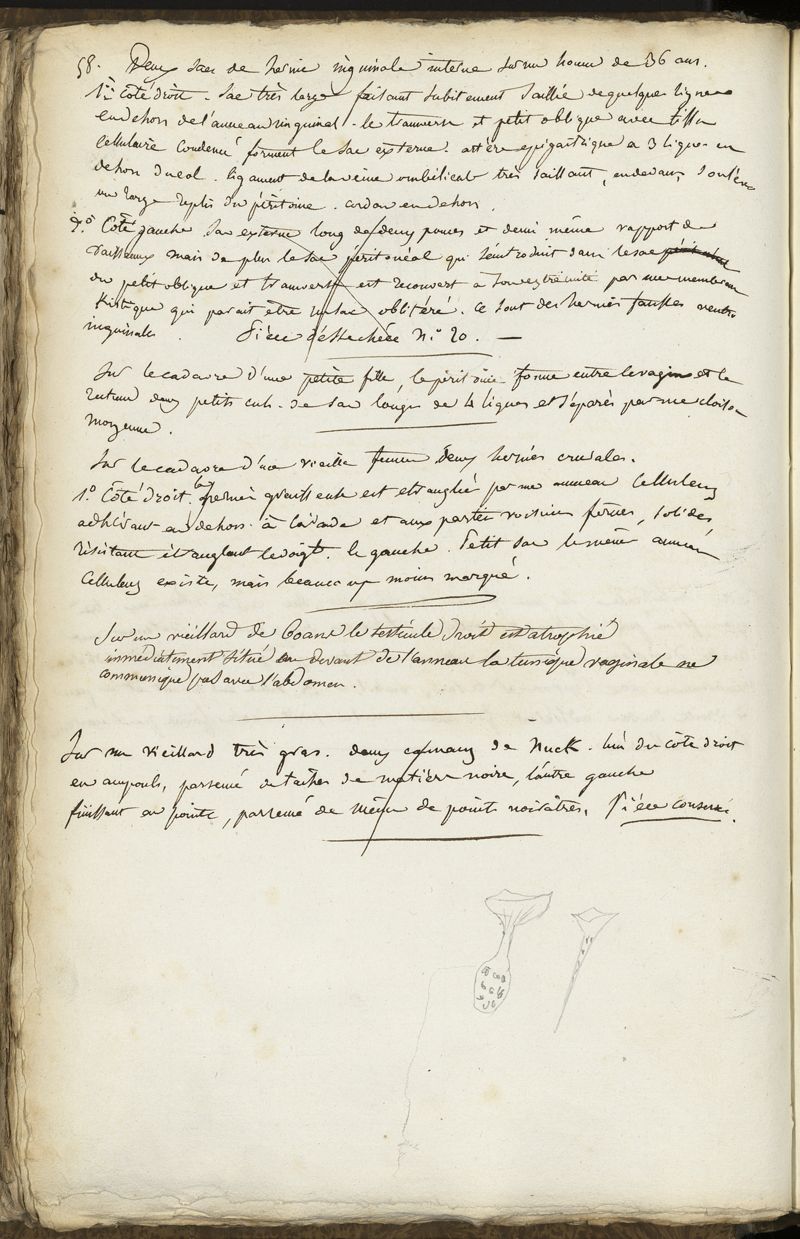 58. Deux sacs de hernie inguinale interne sur un homme de 36 ans.
1º Côté droit. Sac très large faisant subitement saillie de quelques lignes
en dehors de l'anneau inguinal. le transverse et petit oblique avec tissu
cellulaire condensé forment le sac externe. artère epigastrique a 3 lignes en
dehors du col. ligament de la veine ombilicale très saillant, en dedans,
un large replis du péritoine. cordon en dehors.
2º Côté gauche Sac externe long de deux pouces et demi même rapport de
vaisseaux mais de plus le sac peritonéal qui s'introduit dans le sac
du petit oblique et transverse est recouvert à son extrémité par une membrane
Kistique qui parait etre un sac oblitéré. Ce sont des hernies fausses
inguinales. Pièce désséchée Nº 20. —
Sur le cadavre d'une petite fille, le péritoine forme entre le vagin et le
rectum deux petits culs-de sac longs de 4 lignes et séparés par une cloison
moyenne.
Sur le cadavre d'une vieille femme deux hernies crurales.
1º Côté droit. est etranglé par un anneau celluleux
adhérant en dehors à l'arcade et aux parties voisines fermes, solides,
résistant étranglant le doigt. le gauche. Petit sac le même anneau
celluleux existe, mais beaucoup moins marqué.
Sur un vieillard de 60 ans le testicule droit est atrophié
immédiatement situé au devant de l'anneau la tunique vaginale ne
communique pas avec l'abdomen.
Sur un vieillard très gras. deux canaux de Nuck. l'un du côté droit
en ampoule, parsemé de taches de matière noire, l'autre gauche
finissant en pointe, parsemé de même de points noirâtres. Pièce conservée.